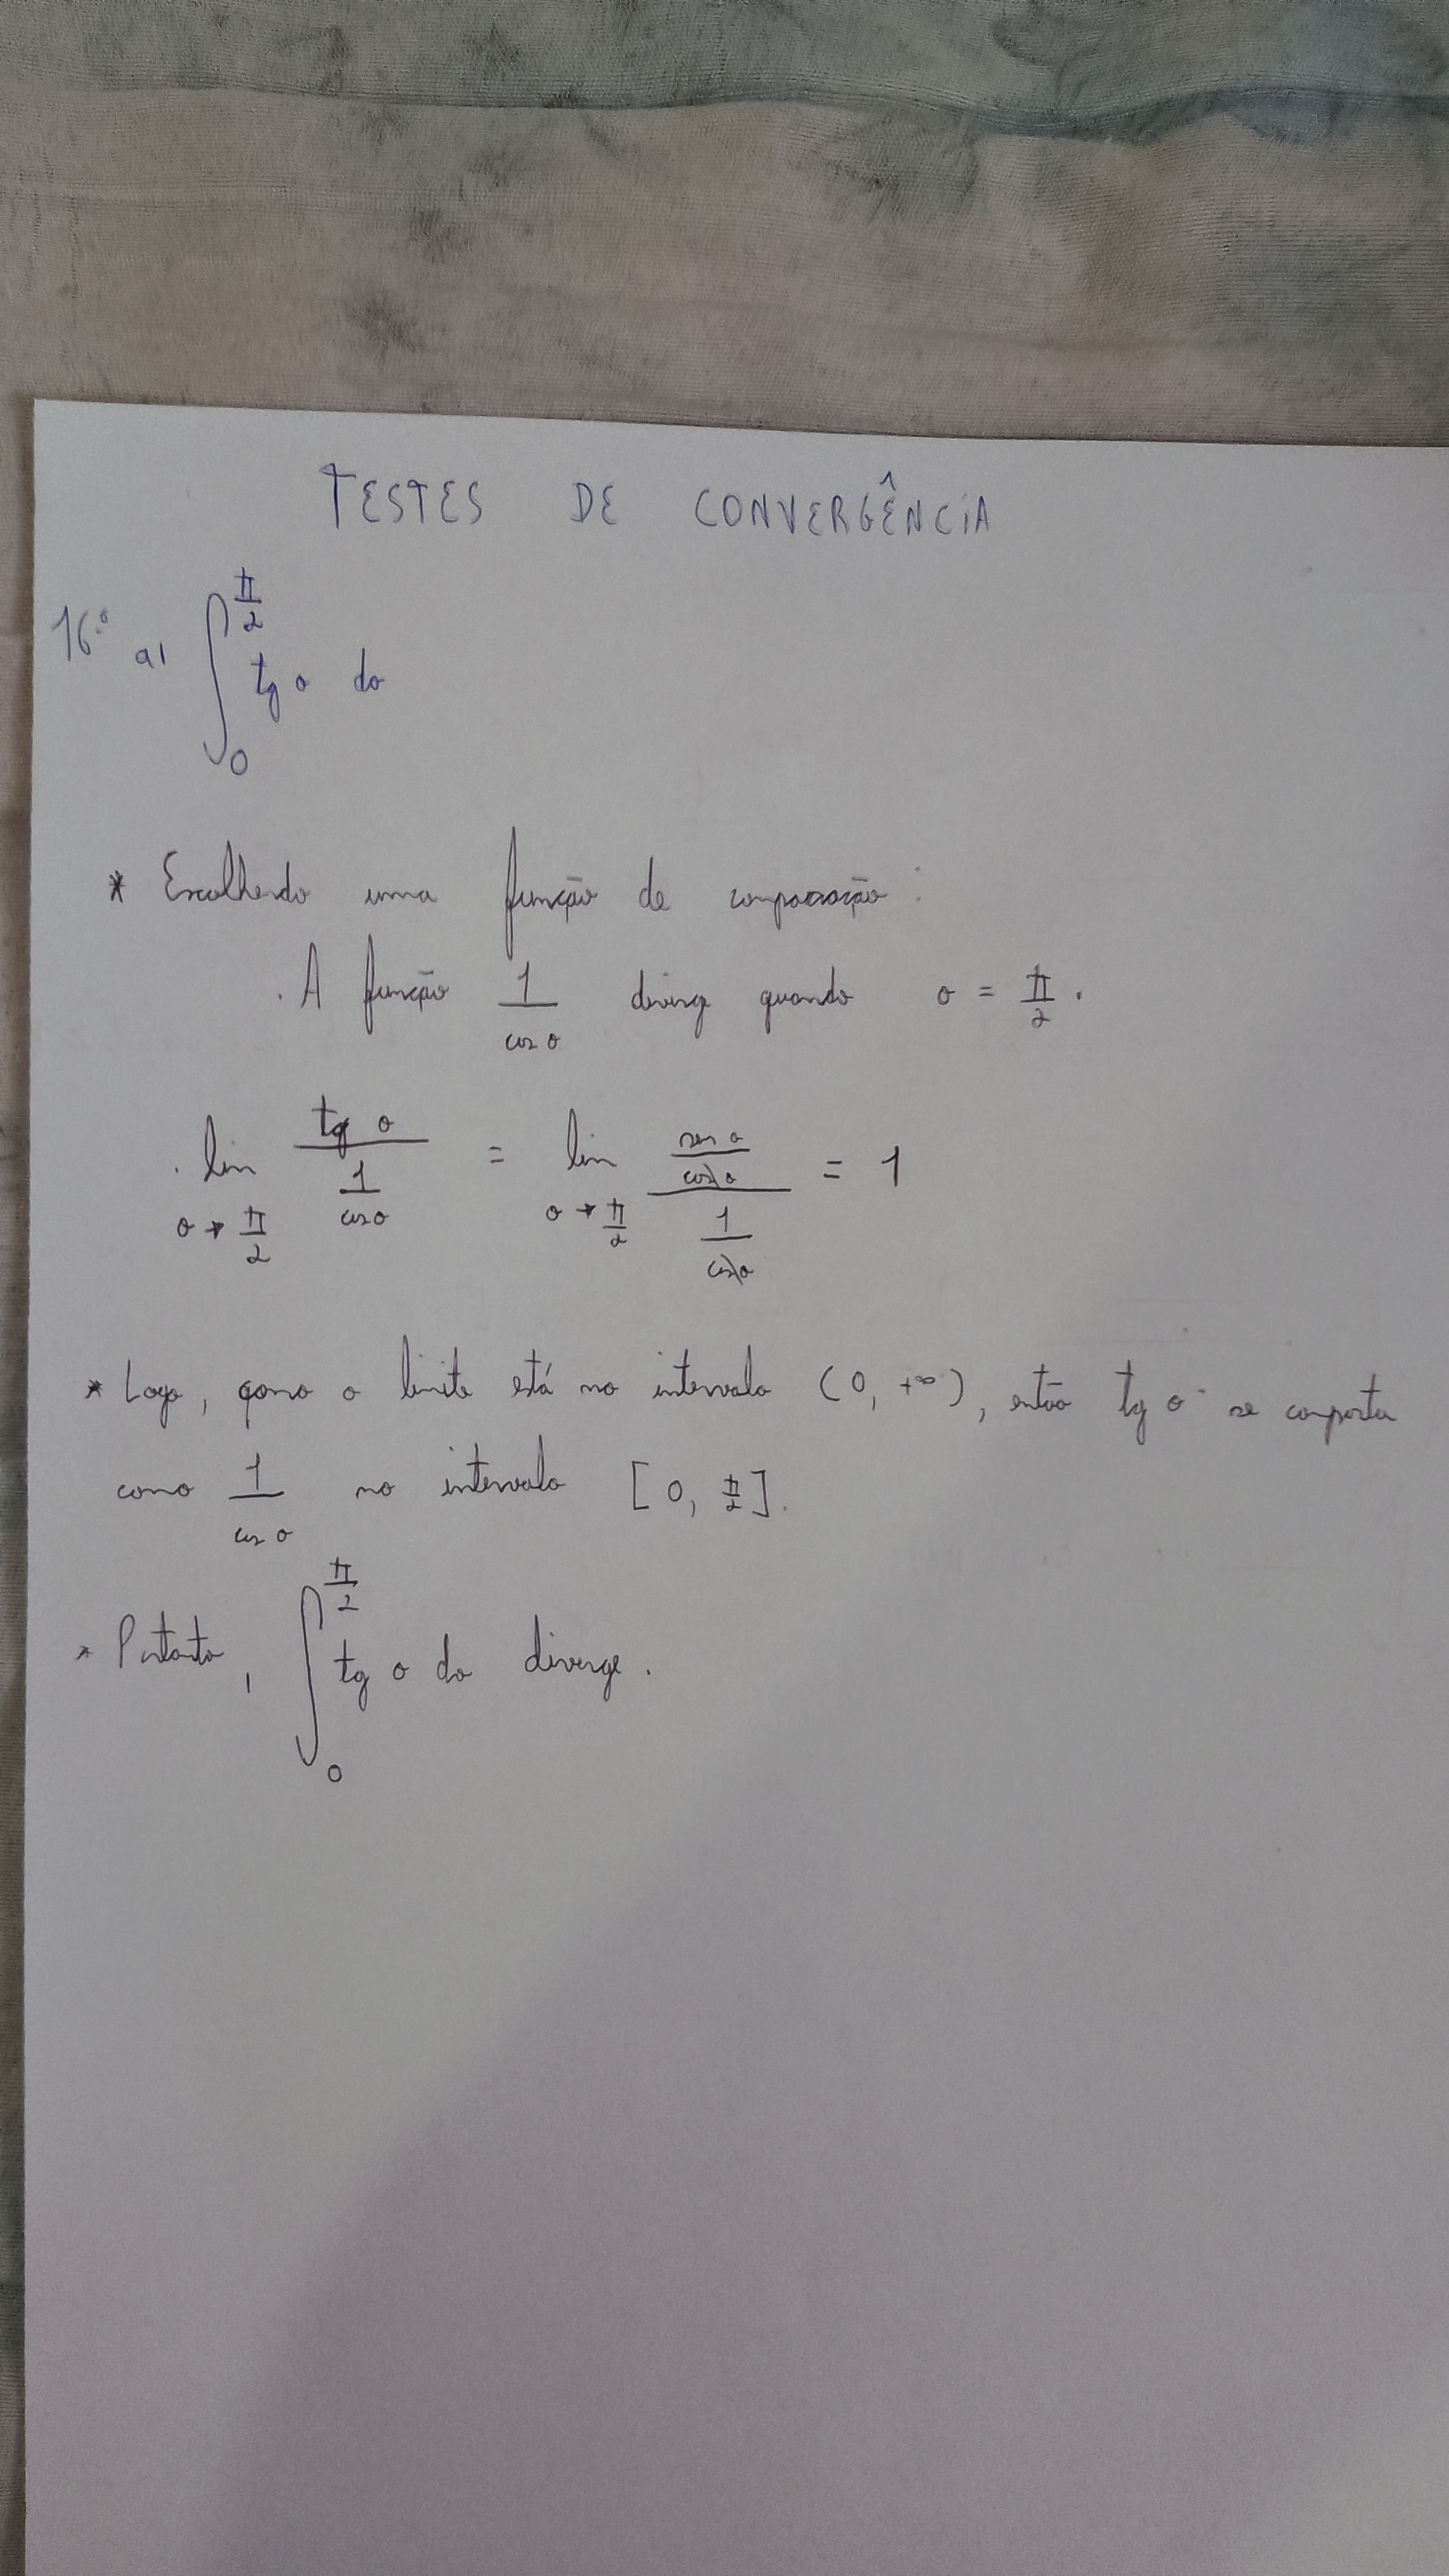 TESTES DE CONVERGÊNCIA
16º a) ∫₀^(π/2) tg θ dθ
* Escolhendo uma função de comparação:
. A função 1/cos θ diverge quando θ = π/2.
. lim θ→π/2 (tg θ)/(1/cos θ) = lim θ→π/2 (sen θ/cos θ)/(1/cos θ) = 1
* Logo, como o limite está no intervalo (0, +∞), então tg θ se comporta
como 1/cos θ no intervalo [0, π/2].
* Portanto, ∫₀^(π/2) tg θ dθ diverge.